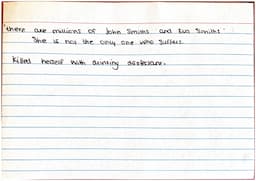 "there are millions of John Smiths and Eva Smiths"
She is not the only one who suffers.
Killed herself with drinking disinfectant.